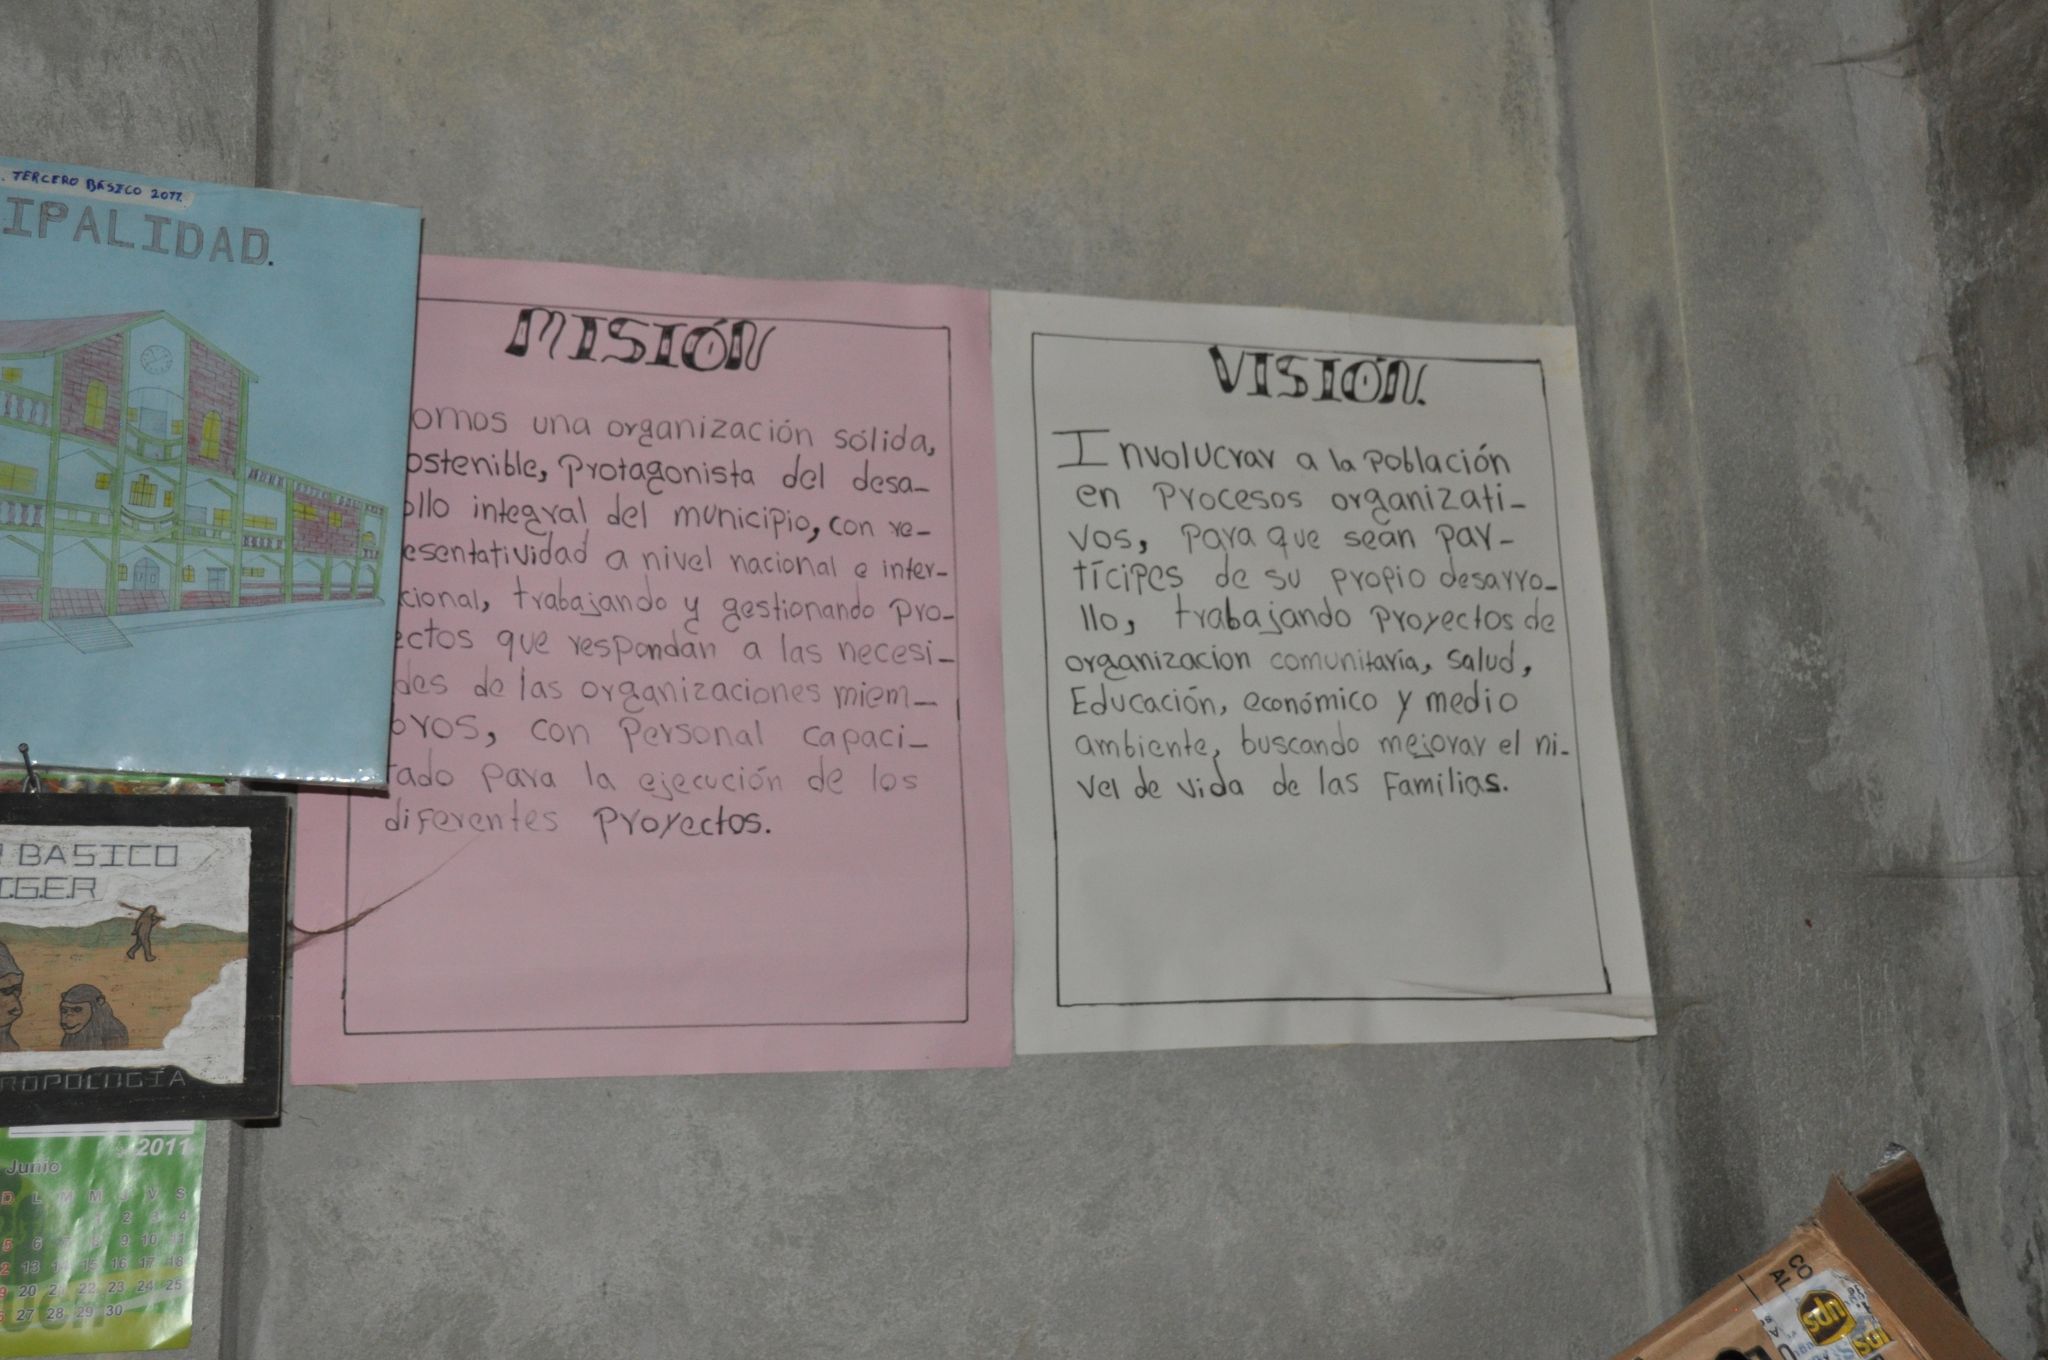 . TERCERO BÁSICO 2011.
IPALIDAD.
MISIÓN
omos una organización sólida,
ostenible, protagonista del desa-
ollo integral del municipio, con re-
esentatividad a nivel nacional e inter-
cional, trabajando y gestionando pro-
ectos que respondan a las necesi-
des de las organizaciones miem-
bros, con personal capaci-
tado para la ejecución de los
diferentes proyectos.
VISIÓN.
Involucrar a la población
en procesos organizati-
vos, para que seán par-
tícipes de su propio desarro-
llo, trabajando proyectos de
organizacion comunitaria, salud,
Educación, económico y medio
ambiente, buscando mejorar el ni-
vel de vida de las familias.
BASICO
I.G.E.R
ROPOLOGÍA
2011
Junio
D L M M J V S
1 2 3 4
5 6 7 8 9 10 11
2 13 14 15 16 17 18
9 20 21 22 23 24 25
6 27 28 29 30
CO
AL
ups